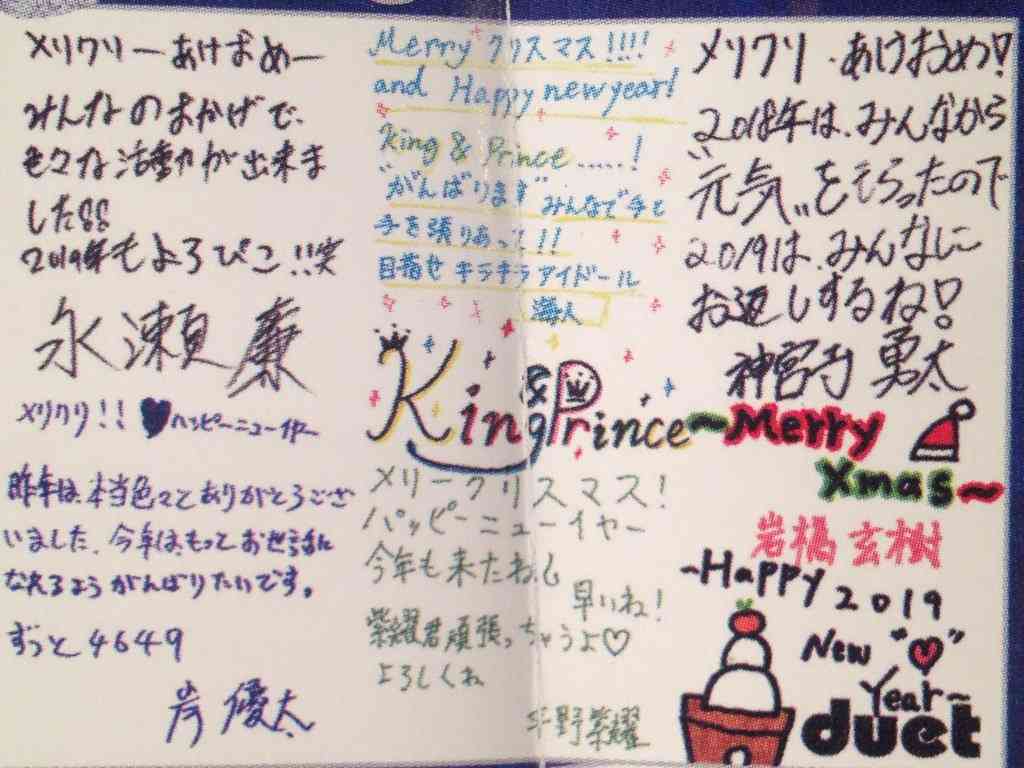 メリクリーあけおめー
みんなのおかげで、
色々な活動が出来ま
した!!
2019年もよろぴこ!!笑
永瀬廉
Merry クリスマス!!!!
and Happy new year!
King & Prince ......!
"がんばります"みんなで手と
手を張りあって!!
目指せ キラキラ アイドール
海人
メリクリ・あけおめ!
2018年は、みんなから
"元気"をもらったので
2019は、みんなに
お返しするね!
神宮寺 勇太
King & Prince
~Merry
Xmas~
メリクリ!! ♥ハッピーニューイヤー
昨年は、本当色々とありがとうござ
いました、今年はもっとお世話に
なれるようがんばりたいです。
ずっと4649
岸 優太
メリークリスマス!
ハッピーニューイヤー
今年も来たねぇ
早いね!
紫耀君頑張っちゃうよ♡
よろしくね
平野紫耀
岩橋玄樹
~Happy 2019
New "♥"
Year~
duet